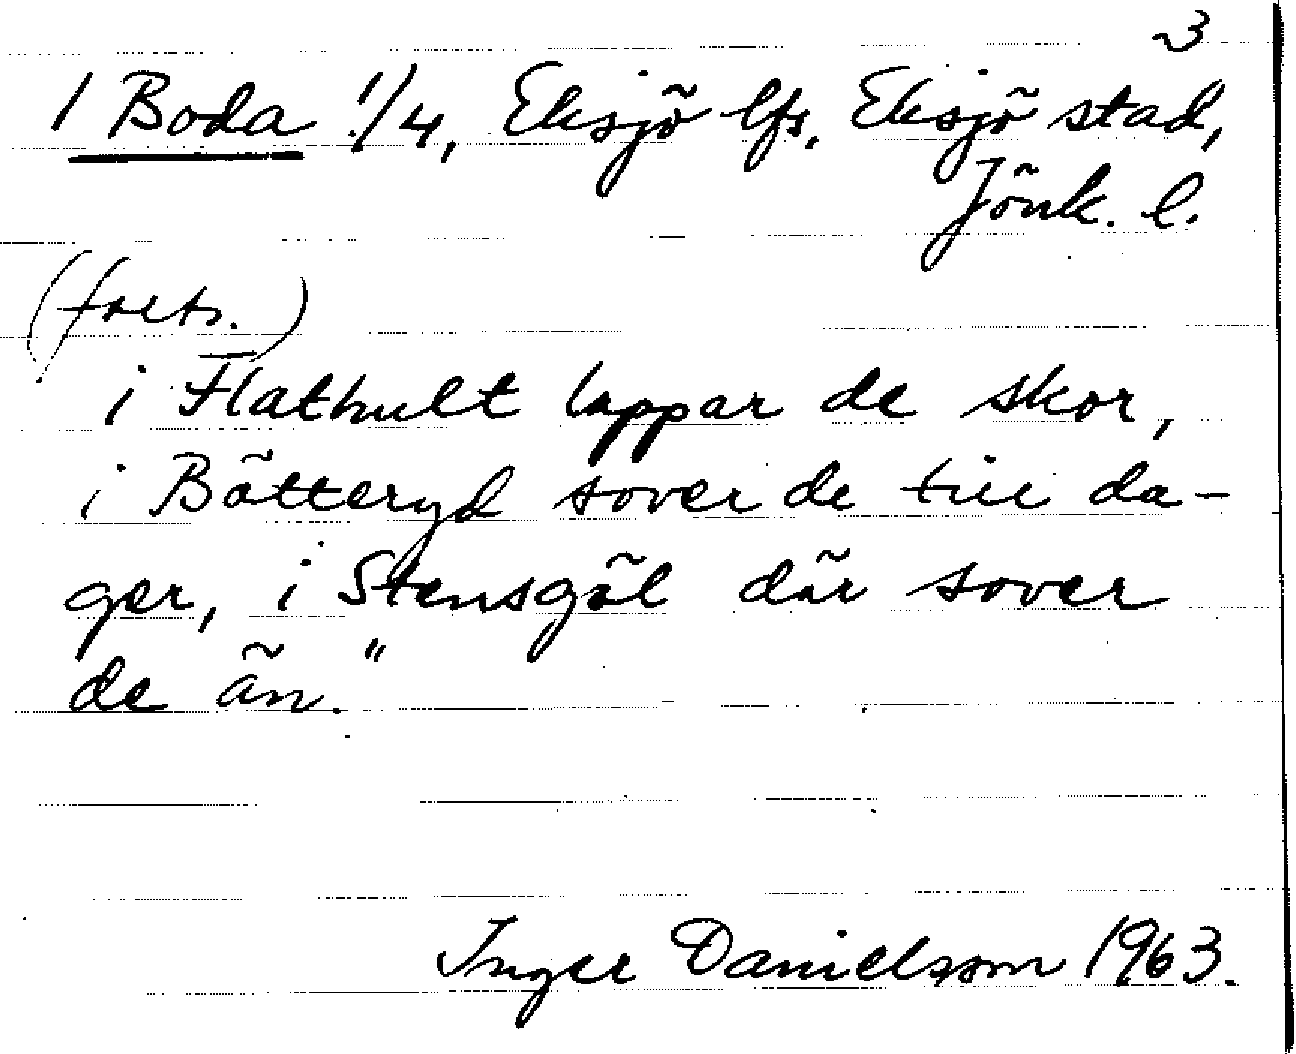 3
1 Boda 1/4, Eksjö lfs, Eksjö stad,
Jönk. l.
(forts.)
i Flathult lappar de skor,
i Bötteryd sover de till da-
ger, i Stensgöl där sover
de än."
Inger Danielsson 1963.